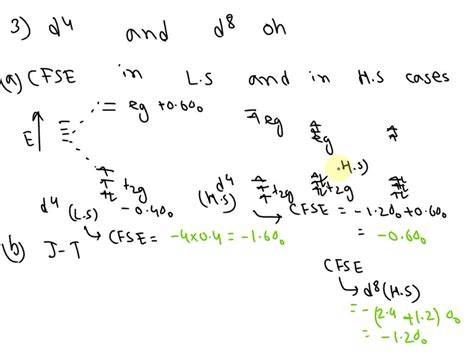 3) d4 and d8 oh
(a) CFSE in L.S and in H.S cases
E
eg +0.6∆o
eg
eg
.H.S)
t2g
-0.4∆o
d4 (L.S)
d4 (H.S)
t2g
t2g
↳ CFSE = -4×0.4 = -1.6∆o
↳ CFSE = -1.2∆o + 0.6∆o
= -0.6∆o
(b) J-T
CFSE
↳ d8 (H.S)
= -(2.4 + 1.2) ∆o
= -1.2∆o